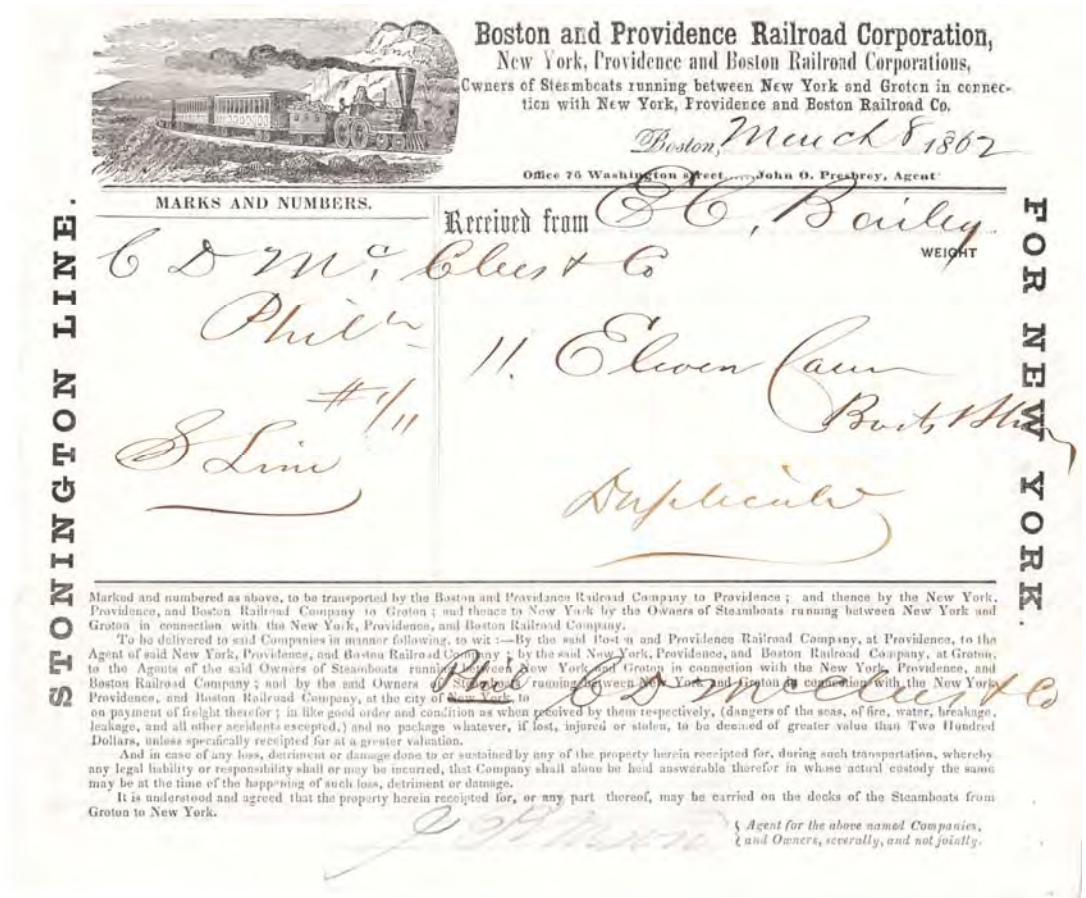 Boston and Providence Railroad Corporation,
New York, Providence and Boston Railroad Corporations,
Owners of Steamboats running between New York and Groton in connec-
tion with New York, Providence and Boston Railroad Co.
Boston, March 8 1862
Office 76 Washington street......John O. Presbrey, Agent
STONINGTON LINE.
MARKS AND NUMBERS.
Received from E C. Bailey
WEIGHT
C D Mc. Clees & Co
Phila
11. Eleven Cases
Boots & Shoes
# 1/11
S Line
Duplicate
FOR NEW YORK.
Marked and numbered as above, to be transported by the Boston and Providence Railroad Company to Providence ; and thence by the New York,
Providence, and Boston Railroad Company to Groton ; and thence to New York by the Owners of Steamboats running between New York and
Groton in connection with the New York, Providence, and Boston Railroad Company.
To be delivered to said Companies in manner following, to wit :—By the said Boston and Providence Railroad Company, at Providence, to the
Agent of said New York, Providence, and Boston Railroad Company ; by the said New York, Providence, and Boston Railroad Company, at Groton,
to the Agents of the said Owners of Steamboats running between New York and Groton in connection with the New York, Providence, and
Boston Railroad Company ; and by the said Owners of Steamboats running between New York and Groton in connection with the New York
Providence, and Boston Railroad Company, at the city of New York, to C D McClees & Co
on payment of freight therefor ; in like good order and condition as when received by them respectively, (dangers of the seas, of fire, water, breakage,
leakage, and all other accidents excepted,) and no package whatever, if lost, injured or stolen, to be deemed of greater value than Two Hundred
Dollars, unless specifically receipted for at a greater valuation.
And in case of any loss, detriment or damage done to or sustained by any of the property herein receipted for, during such transportation, whereby
any legal liability or responsibility shall or may be incurred, that Company shall alone be held answerable therefor in whose actual custody the same
may be at the time of the happening of such loss, detriment or damage.
It is understood and agreed that the property herein receipted for, or any part thereof, may be carried on the decks of the Steamboats from
Groton to New York.
Agent for the above named Companies,
and Owners, severally, and not jointly.